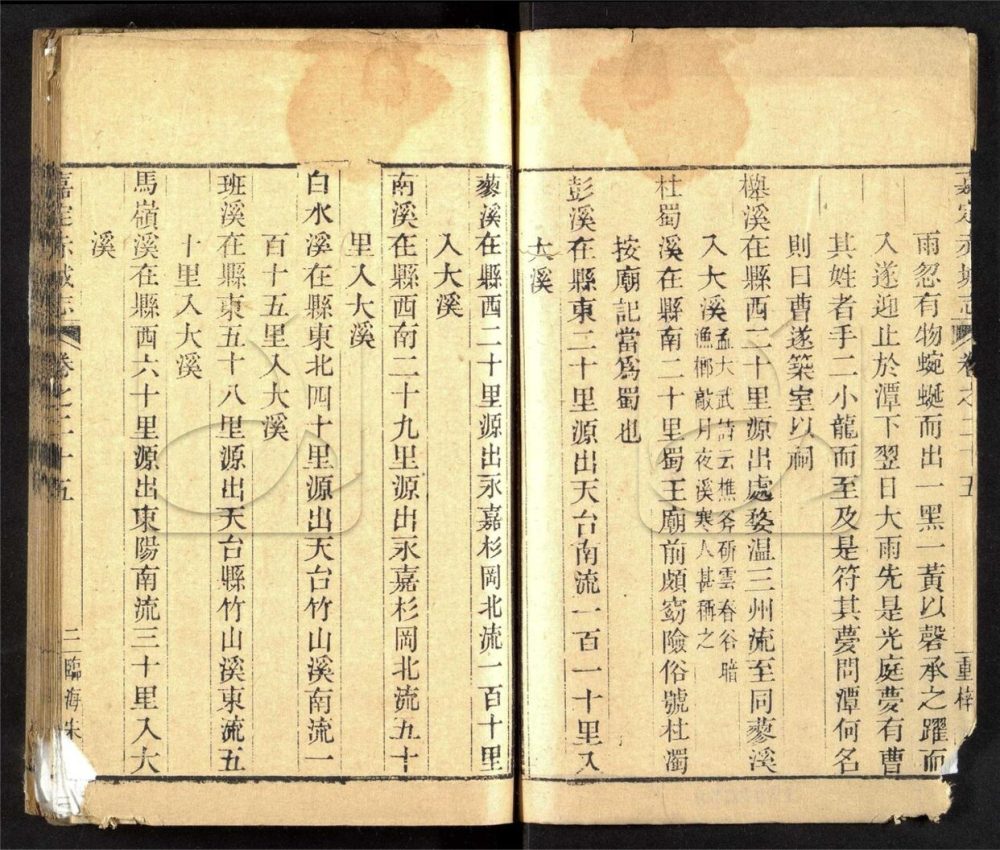 嘉定赤城志 卷之二十五 重梓
雨忽有物蜿蜒而出一黑一黃以磬承之躍而
入遂迎止於潭下翌日大雨先是光庭夢有曹
其姓者手二小龍而至及是符其夢問潭何名
則曰曹遂築室以祠
櫸溪在縣西二十里源出處婺温三州流至同蓼溪
入大溪孟大武詩云樵斧斫雲春谷暗
漁榔敲月夜溪寒人甚稱之
杜蜀溪在縣南二十里蜀王廟前頗窈險俗號杜濁
按廟記當爲蜀也
彭溪在縣東二十里源出天台南流一百一十里入
大溪
蓼溪在縣西二十里源出永嘉杉岡北流一百十里
入大溪
南溪在縣西南二十九里源出永嘉杉岡北流五十
里入大溪
白水溪在縣東北四十里源出天台竹山溪南流一
百十五里入大溪
班溪在縣東五十八里源出天台縣竹山溪東流五
十里入大溪
馬嶺溪在縣西六十里源出東陽南流三十里入大
溪
嘉定赤城志 卷之二十五 二 臨海朱